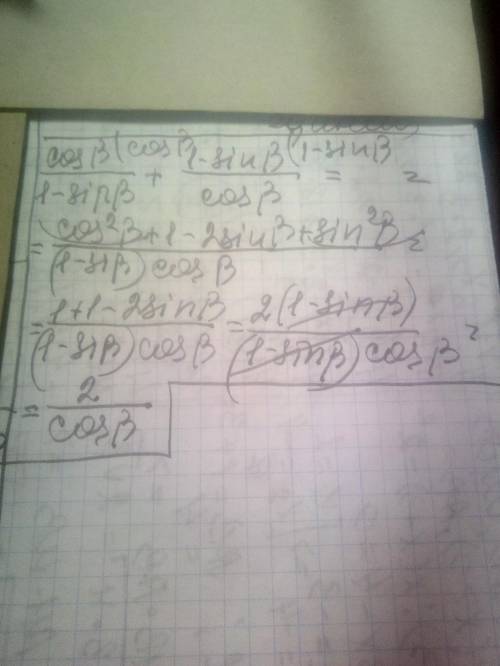 cosβ(cosβ / 1-sinβ + 1-sinβ(1-sinβ / cosβ = =
= cos²β+1-2sinβ+sin²β / (1-siβ)cosβ =
= 1+1-2sinβ / (1-siβ)cosβ = 2(1-sinβ) / (1-sinβ)cosβ =
= 2 / cosβ